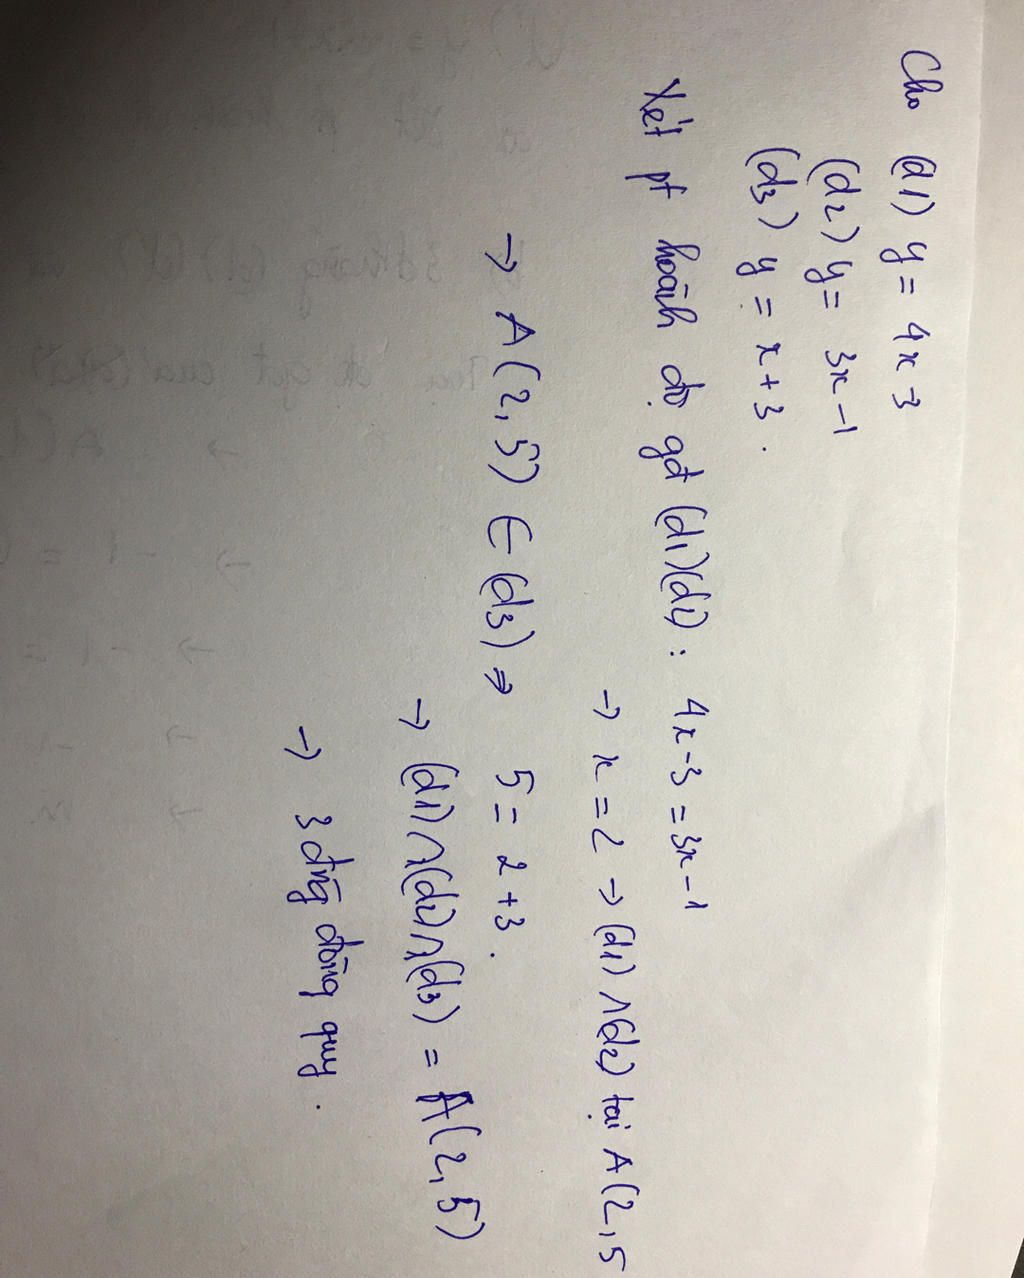 Cho (d1) y = 4x-3
(d2) y = 3x-1
(d3) y = x+3.
Xét pt hoành độ gđ (d1)(d2): 4x-3 = 3x-1
→ x = 2 → (d1) ∩ (d2) tại A(2,5
→ A(2,5) ∈ (d3) → 5 = 2+3.
→ (d1)∩(d2)∩(d3) = A(2,5)
→ 3 đng đồng quy.